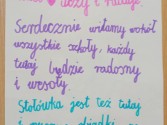 uczy i
Serdecznie witamy wokół
wszystkie szkoły, każdy
tutaj będzie radosny
i wesoły.
Stołówka jest też tutaj
i obiadki